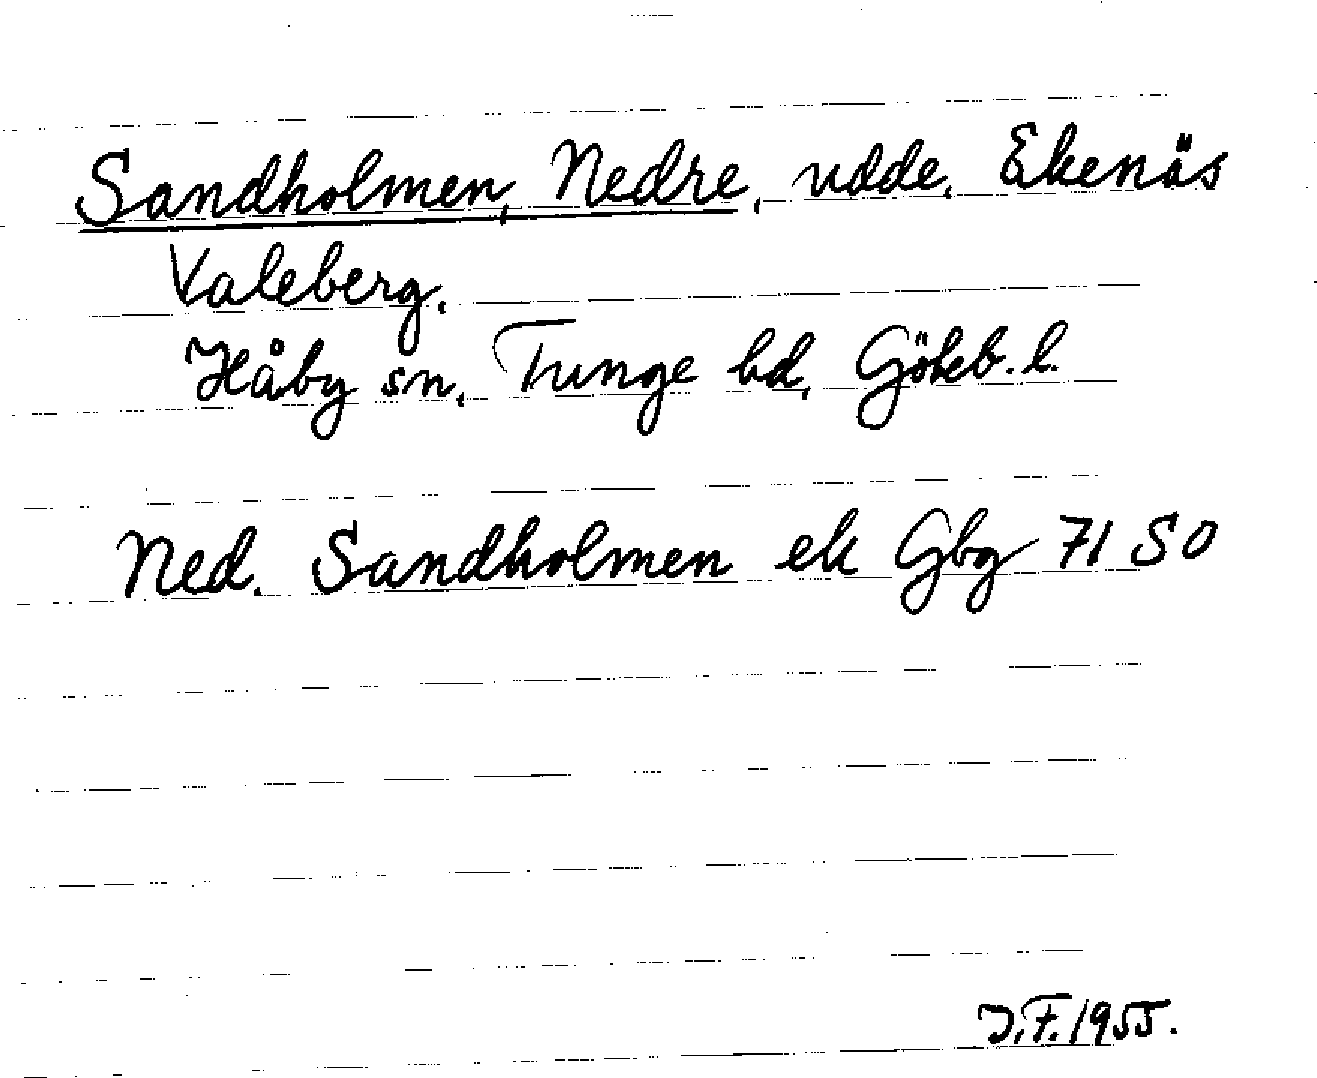 Sandholmen, Nedre, udde, Ekenäs
Valeberg.
Håby sn, Tunge hd, Göteb. l.
Ned. Sandholmen ek Gbg 71 SO
J.F. 1955.